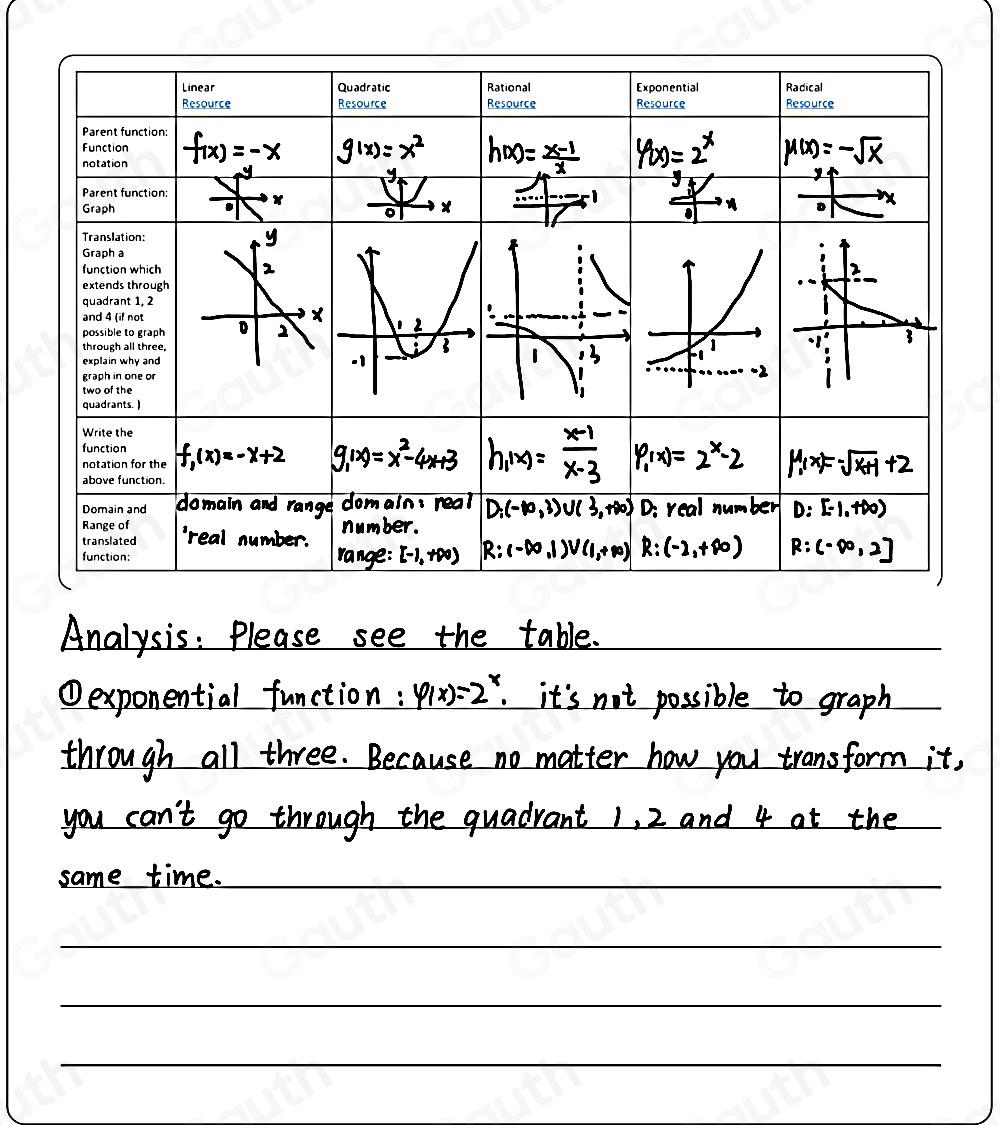 Linear Quadratic Rational Exponential Radical
Resource Resource Resource Resource Resource
Parent function:
Function
notation
f(x) = -x g(x) = x² h(x) = x-1/x φ(x) = 2^x μ(x) = -√x
Parent function:
Graph
y x 0
y x 0
1
y x 0
y x 0
Translation:
Graph a
function which
extends through
quadrant 1, 2
and 4 (if not
possible to graph
through all three,
explain why and
graph in one or
two of the
quadrants. )
y 2 0 2 x
1 2 3 -1
1 1 3
1 -1 -2
2 -1 3
Write the
function
notation for the
above function.
f₁(x) = -x+2 g₁(x) = x²-4x+3 h₁(x) = x-1/x-3 φ₁(x) = 2^x-2 μ₁(x) = -√x+1 +2
Domain and
Range of
translated
function:
domain and range
'real number.
domain: real
number.
range: [-1, +∞)
D:(-∞,3)∪(3,+∞)
R:(-∞,1)∪(1,+∞)
D: real number
R:(-2,+∞)
D: [-1,+∞)
R: (-∞, 2]
Analysis: Please see the table.
① exponential function : φ(x)=2^x. it's not possible to graph
through all three. Because no matter how you transform it,
you can't go through the quadrant 1, 2 and 4 at the
same time.
Gauth